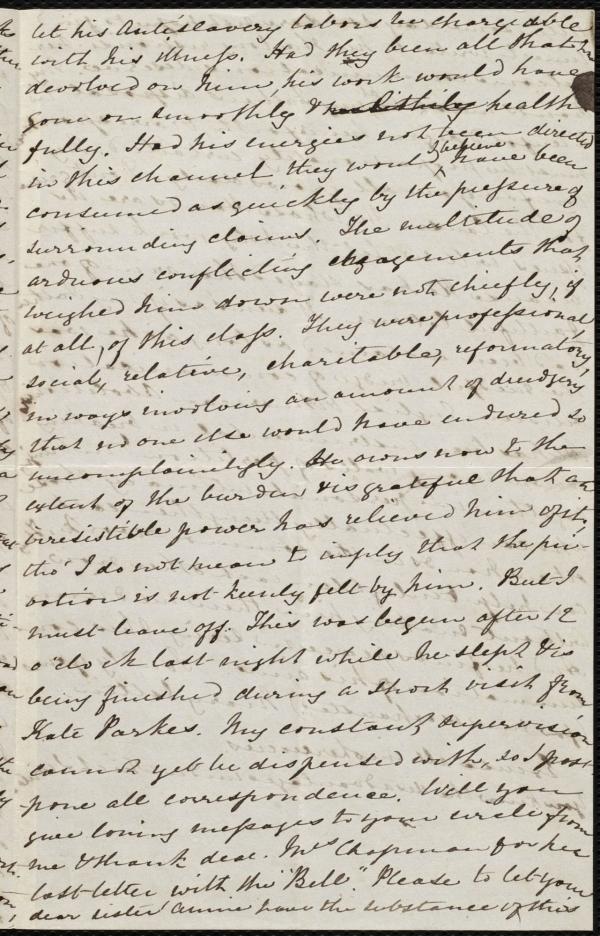 let his Antislavery labors be chargeable
with his illness. Had they been all that
devolved on him, his work would have
gone on smoothly & health
fully. Had his energies not been directed
in this channel they would I believe have been
consumed as quickly by the pressure of
surrounding claims. The multitude of
arduous conflicting engagements that
weighed him down were not chiefly, if
at all, of this class. They were professional
social, relative, charitable, reformatory,
in ways involving an amount of drudgery
that no one else would have endured so
uncomplainingly. He owns now to the
extent of the burden & is grateful that an
irresistible power has relieved him of it,
tho' I do not mean to imply that the pri-
vation is not keenly felt by him. But I
must leave off. This was begun after 12
o'clock last night while he slept & is
being finished during a short visit from
Kate Parkes. My constant supervision
cannot yet be dispensed with, so I post-
pone all correspondence. Will you
give loving messages to your uncle from
me & thank dear Mrs Chapman for her
last letter with the "Bell". Please to let your
dear sister Annie have the substance of this